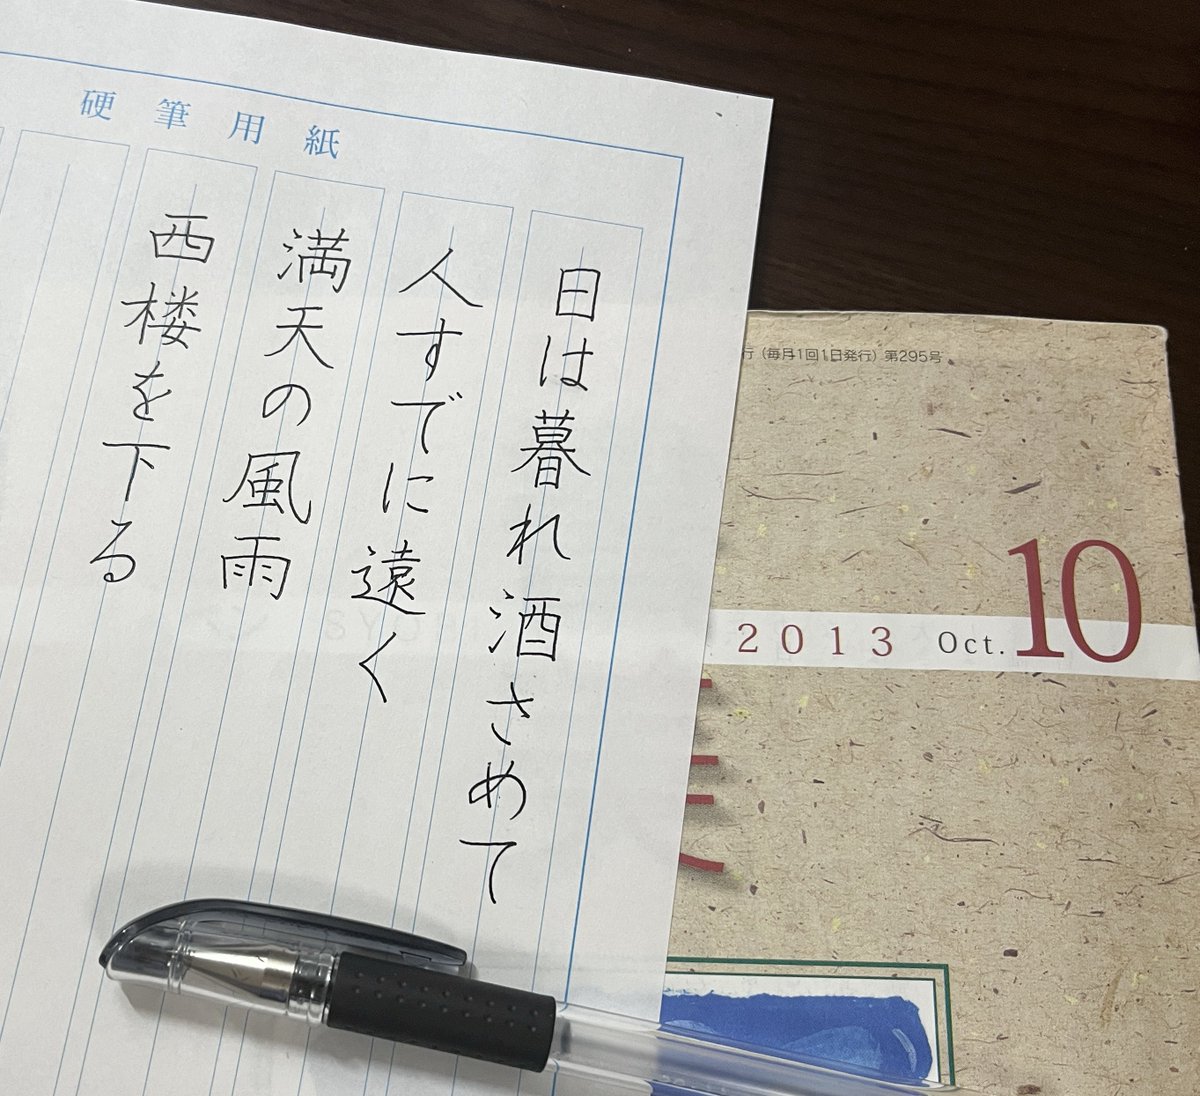 硬筆用紙
日は暮れ酒さめて
人すでに遠く
満天の風雨
西楼を下る
行(毎月1回1日発行)第295号
2013 Oct. 10